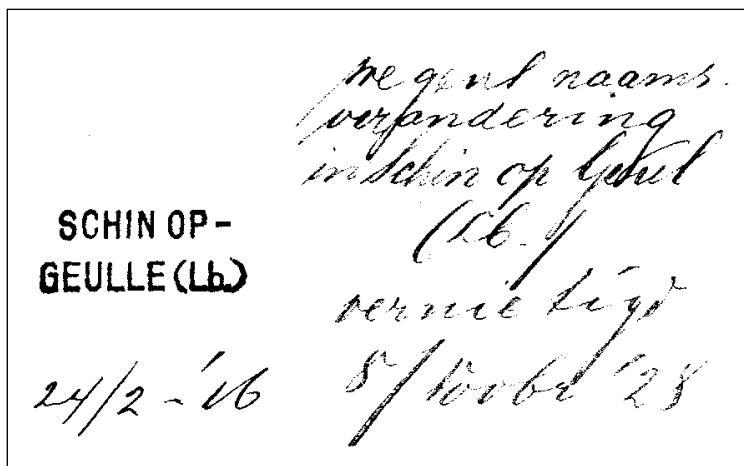 SCHIN OP-
GEULLE (Lb.)
24/2 - '16
wegens naams-
verandering
in Schin op Geul
(Lb.)
vernietigd
8/Novbr '28